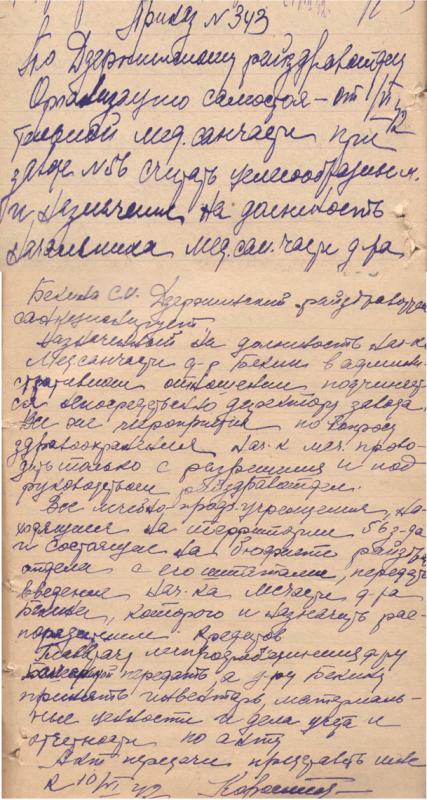 Приказ № 343
По Дзержинскому райздравотделу
Организацию самостоя- от 1/VI 42
тельной мед.санчасти при
заводе № 56 считать целесообразным.
и назначение на должность
начальника мед.сан.части д-ра
Бекина С.И. Дзержинский райздравотдел
санкционирует
Назначенный на должность нач-ка
Медсанчасти д-р Бекин в админи-
стративном отношении подчиняет-
ся непосредственно директору завода.
Все же мероприятия по вопросу
здравоохранения нач-к мсч. прово-
дить только с разрешения и под
руководством райздравотдела.
Все лечебно-проф. учреждения, на-
ходящиеся на территории 56 з-да
и состоящие на бюджете райздрав
отдела с его штатами, передать
введение нач-ка мсчасти д-ра
Бекина, которого и назначить рас-
порядителем кредитов
передать а д-ру Бекину
принять инвентарь, материаль-
ные ценности и дела учета и
отчетности по акту
Акт передачи представить мне
к 10/VI 42